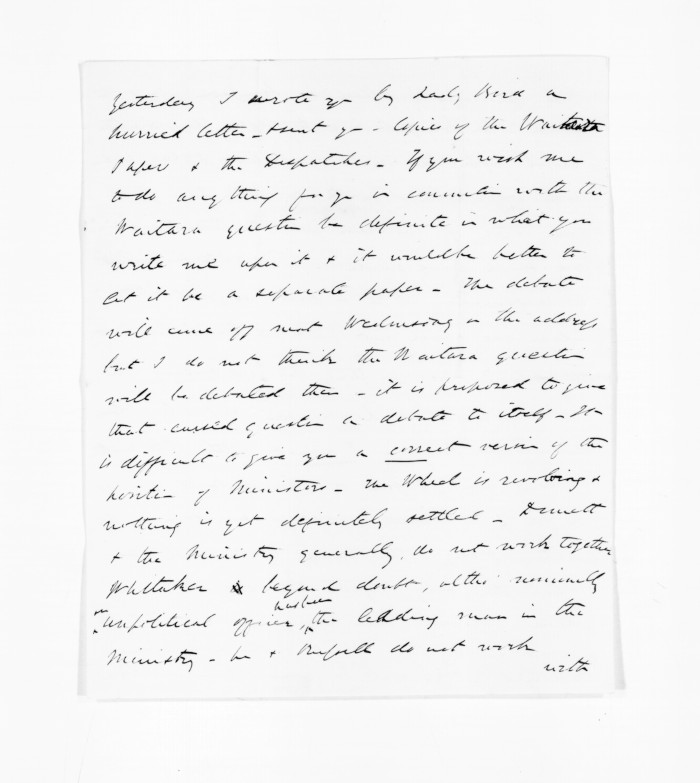 Yesterday I wrote yo by Lady Bird a
hurried letter - & sent yo - Copies of the Waitara
Paper & the Despatches - If you wish me
to do any thing for yo in connection with the
Waitara question be definite in what you
write me upon it & it would be better to
let it be a separate paper - The debate
will come off next Wednesday on the address
but I do not think the Waitara question
will be debated then - it is proposed to give
that cursed question a debate to itself - It
is difficult to give you a correct version of the
position of Ministers - The Wheel is revolving &
nothing is yet definitely settled - Domett
& the Ministry generally, do not work together
Whitaker is beyond doubt, altho' nominally
an unpolitical officer, has been the leading man in the
Ministry - he & Russell do not work
with